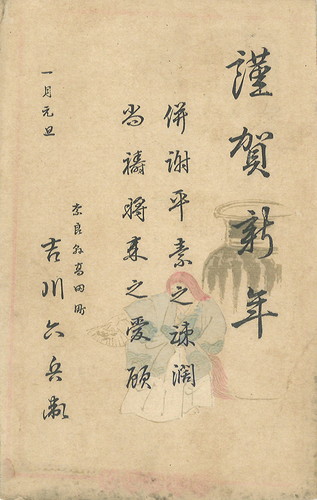 謹賀新年
併謝平素之疎濶
尚禱將来之愛顧
一月元旦
奈良縣高田町
吉川六兵衞